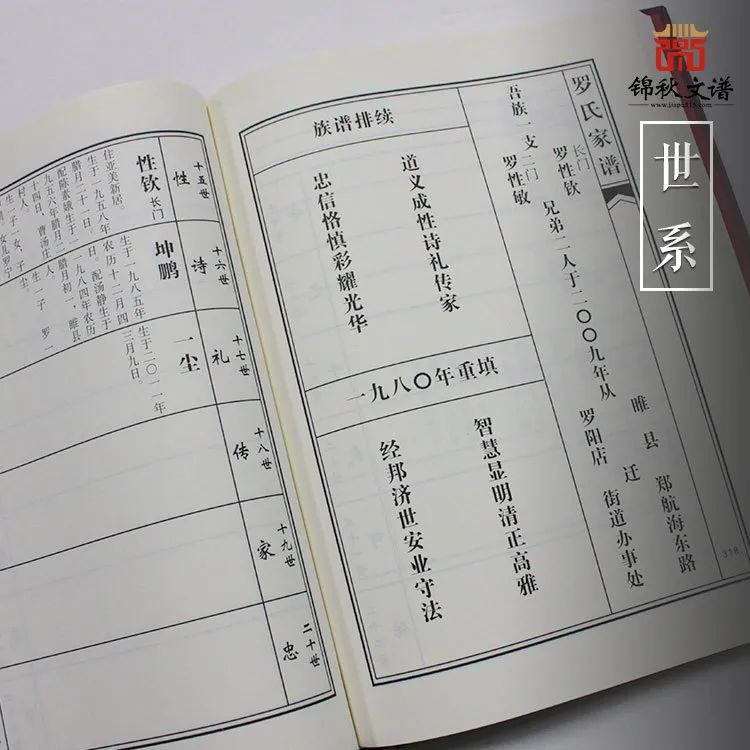 锦秋文谱
www.jiapu315.com
世系
罗氏家谱
吾族一支
长门 罗性钦
二门 罗性敏
兄弟二人于二〇〇九年从
睢县
罗阳店
迁
郑航海东路
街道办事处
318
族谱排续
道义成性诗礼传家
忠信恪慎彩耀光华
一九八〇年重填
智慧显明清正高雅
经邦济世安业守法
十五世
性
性钦 长门
生于一九五八年农历
腊月二十一日。
配陈素娥生于一
九五六年腊月二
十四日,曹汤庄
村人,
住亚美新居。
十六世
诗
坤鹏
生于一九八五年
农历十二月四
日,配汤静生于
一九八四年农历
腊月初一,睢县
十七世
礼
一尘
生于二〇一一年
三月九日。
十八世
传
十九世
家
二十世
忠